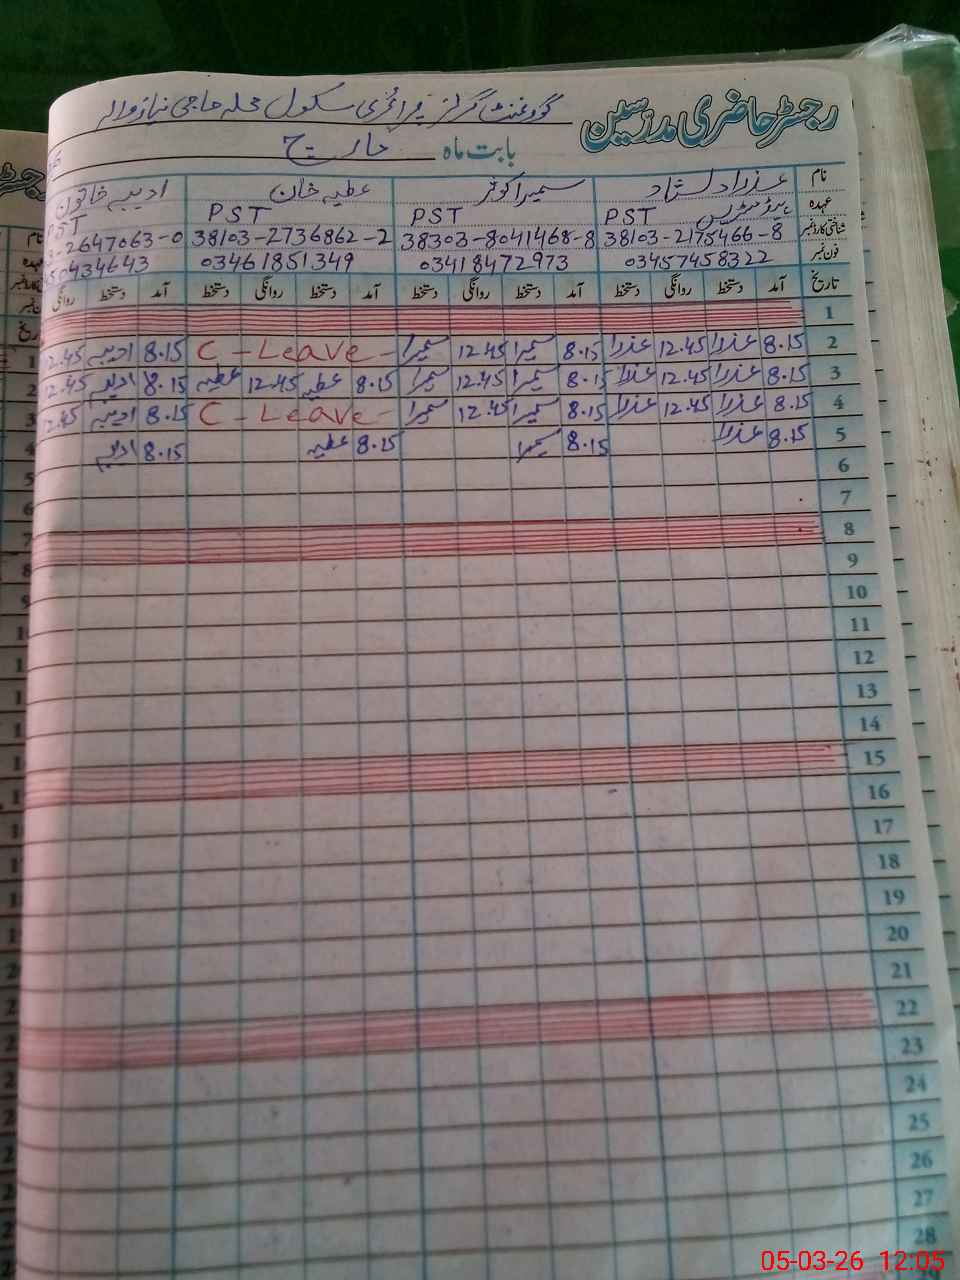 رجسٹر حاضری مدرسین گورنمنٹ گرلز پرائمری سکول محلہ حاجی نیاز والا
بابت ماہ مارچ
نام عذرا دلشاد سمیرا کوثر عطیہ خان ادیبہ خاتون
عہدہ ہیڈمسٹریس PST PST PST PST
شناختی کارڈ نمبر 38103-2175466-8 38303-8041468-8 38103-2736862-2 2647063-0
فون نمبر 03457458322 03418472973 03461851349 434643
تاریخ آمد دستخط روانگی دستخط آمد دستخط روانگی دستخط آمد دستخط روانگی دستخط آمد دستخط روانگی
1
2 8.15 عذرا 12.45 عذرا 8.15 سمیرا 12.45 سمیرا C - Leave - 8.15 ادیبہ 12.45
3 8.15 عذرا 12.45 عذرا 8.15 سمیرا 12.45 سمیرا 8.15 عطیہ 12.45 عطیہ 8.15 ادیبہ 12.45
4 8.15 عذرا 12.45 عذرا 8.15 سمیرا 12.45 سمیرا C - Leave - 8.15 ادیبہ 12.45
5 8.15 عذرا 8.15 سمیرا 8.15 عطیہ 8.15 ادیبہ
6
7
8
9
10
11
12
13
14
15
16
17
18
19
20
21
22
23
24
25
26
27
28
05-03-26 12:05